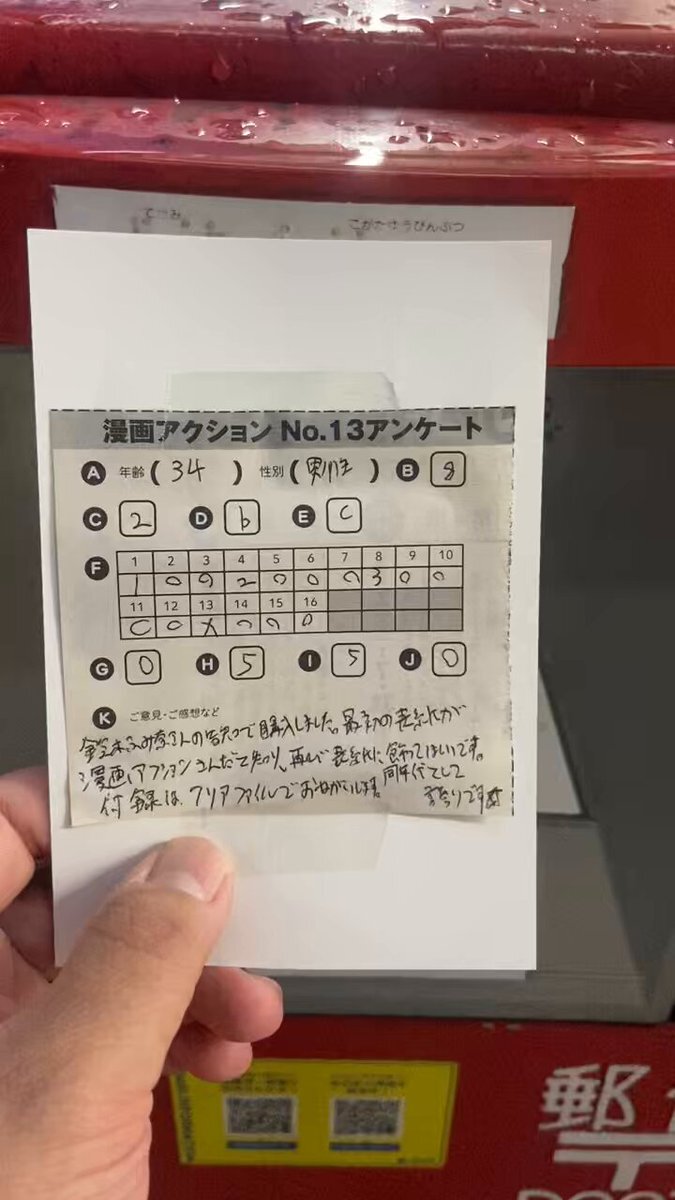 てがみ
こがたゆうびんぶつ
漫画アクション No.13アンケート
A 年齢 ( 34 ) 性別 ( 男性 ) B 8
C 2 D b E C
F 1 2 3 4 5 6 7 8 9 10
1 0 0 2 0 0 0 3 0 0
11 12 13 14 15 16
0 0 X 0 0 0
G 0 H 5 I 5 J 0
K ご意見・ご感想など
鈴木ふみ奈さんの告知で購入しました。最初の表紙が
漫画アクションさんだと知り、再び表紙に飾ってほしいです。
付録は、クリアファイルでおねがいします。同年代として
誇りです
郵